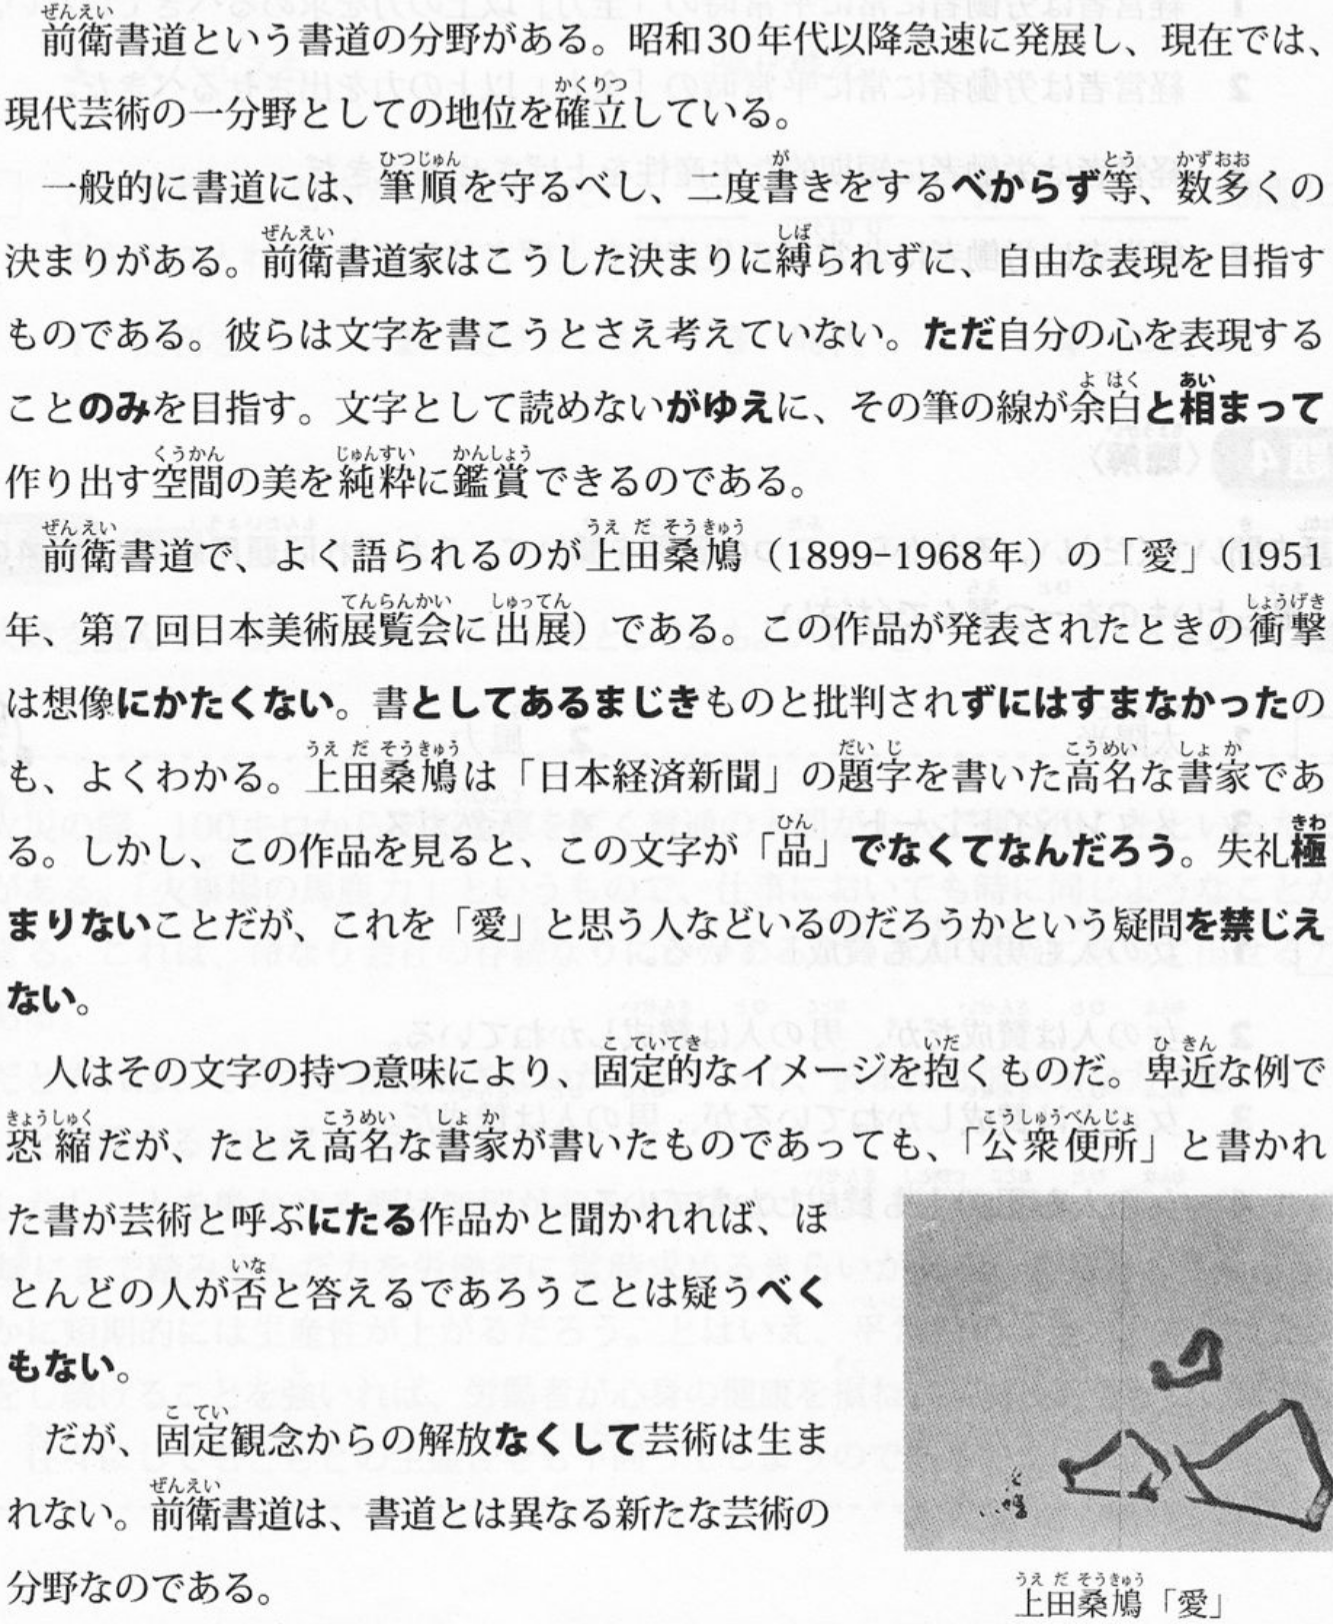 前衛書道という書道の分野がある。昭和30年代以降急速に発展し、現在では、
現代芸術の一分野としての地位を確立している。
一般的に書道には、筆順を守るべし、二度書きをするべからず等、数多くの
決まりがある。前衛書道家はこうした決まりに縛られずに、自由な表現を目指す
ものである。彼らは文字を書こうとさえ考えていない。ただ自分の心を表現する
ことのみを目指す。文字として読めないがゆえに、その筆の線が余白と相まって
作り出す空間の美を純粋に鑑賞できるのである。
前衛書道で、よく語られるのが上田桑鳩（1899-1968年）の「愛」（1951
年、第7回日本美術展覧会に出展）である。この作品が発表されたときの衝撃
は想像にかたくない。書としてあるまじきものと批判されずにはすまなかったの
も、よくわかる。上田桑鳩は「日本経済新聞」の題字を書いた高名な書家であ
る。しかし、この作品を見ると、この文字が「品」でなくてなんだろう。失礼極
まりないことだが、これを「愛」と思う人などいるのだろうかという疑問を禁じえ
ない。
人はその文字の持つ意味により、固定的なイメージを抱くものだ。卑近な例で
恐縮だが、たとえ高名な書家が書いたものであっても、「公衆便所」と書かれ
た書が芸術と呼ぶにたる作品かと聞かれれば、ほ
とんどの人が否と答えるであろうことは疑うべく
もない。
だが、固定観念からの解放なくして芸術は生ま
れない。前衛書道は、書道とは異なる新たな芸術の
分野なのである。
上田桑鳩「愛」